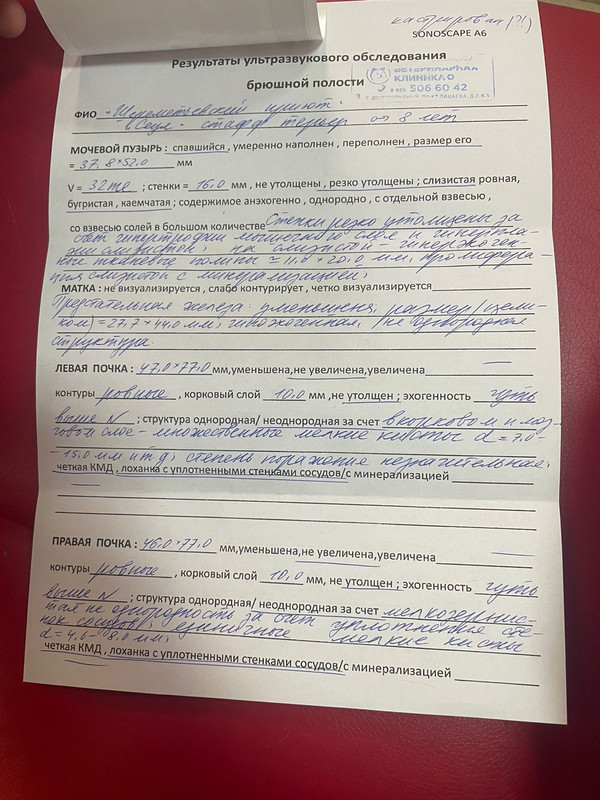 кастрирован (?!)
SONOSCAPE A6
Результаты ультразвукового обследования
брюшной полости
ВЕТЕРИНАРНАЯ
КЛИНИКА
506 60 42
ФИО "Шереметьевский приют"
"Сеул" - стафф терьер от 8 лет
МОЧЕВОЙ ПУЗЫРЬ : спавшийся , умеренно наполнен , переполнен , размер его
= 37.8×52.0 мм
V = 32 мл ; стенки = 16.0 мм , не утолщены , резко утолщены ; слизистая ровная,
бугристая , каемчатая ; содержимое анэхогенно , однородно , с отдельной взвесью ,
со взвесью солей в большом количестве Стенки резко утолщены за
счет гипертрофии мышечного слоя и гиперпла-
зии слизистой, на слизистой - гиперэхоген-
ные тканевые полипы = 11.0 × 20.0 мм, пролифера-
ция слизистой с минерализацией;
МАТКА : не визуализируется , слабо контурирует , четко визуализируется
Предстательная железа: уменьшена, размер (цели-
ком) = 27.7 × 44.0 мм, гипоэхогенная, неоднородная
структура.
ЛЕВАЯ ПОЧКА : 47.0×77.0 мм,уменьшена,не увеличена,увеличена
контуры ровные , корковый слой 10.0 мм ,не утолщен ; эхогенность чуть
выше N ; структура однородная/ неоднородная за счет в корковом и моз-
говом слое - множественные мелкие кисты d = 7.0 -
- 15.0 мм и т д; степень поражения незначительная;
четкая КМД , лоханка с уплотненными стенками сосудов/с минерализацией
ПРАВАЯ ПОЧКА : 46.0×77.0 мм,уменьшена,не увеличена,увеличена
контуры ровные , корковый слой 10.0 мм, не утолщен ; эхогенность чуть
выше N ; структура однородная/ неоднородная за счет мелкозернис-
тая неоднородность за счет уплотнения сте-
нок сосудов, единичные мелкие кисты
d = 4.0 - 8.0 мм;
четкая КМД , лоханка с уплотненными стенками сосудов/с минерализацией